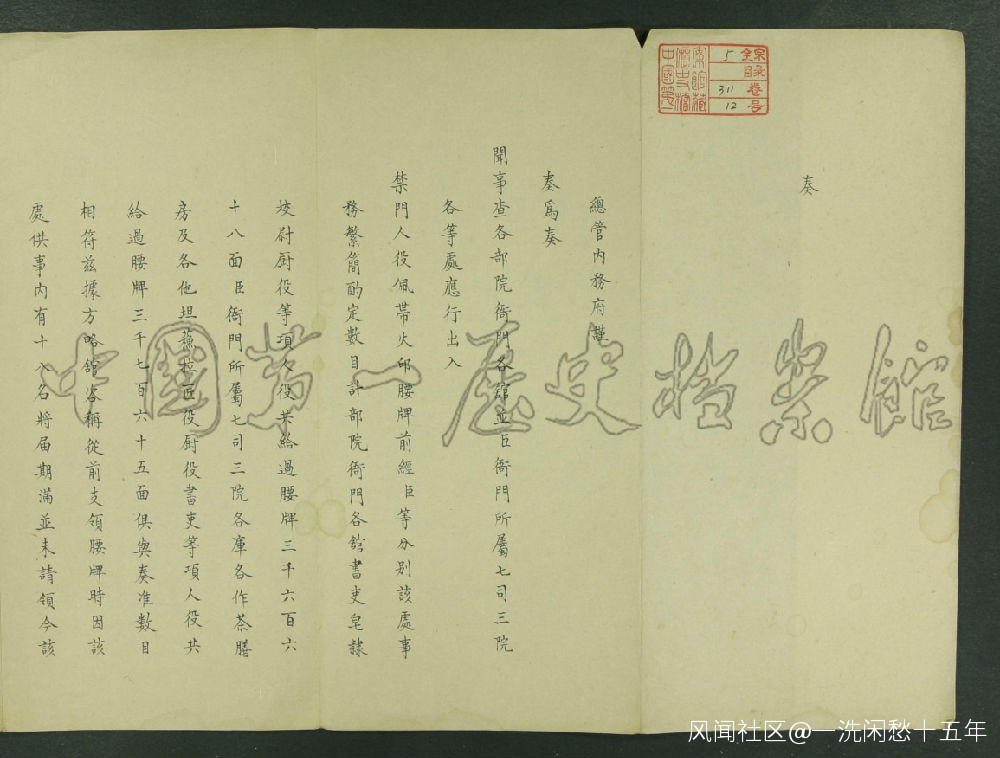 奏
總管內務府謹
奏為奏
聞事查各部院衙門各館並臣衙門所屬七司三院
各等處應行出入
禁門人役佩帶火印腰牌前經臣等分別該處事
務繁簡酌定數目計部院衙門各館書吏皂隸
校尉厨役等項人役共給過腰牌三千六百六
十八面臣衙門所屬七司三院各庫各作茶膳
房及各他坦蘇拉匠役厨役書吏等項人役共
給過腰牌三千七百六十五面俱與奏准數目
相符茲據方略館咨稱從前支領腰牌時因該
處供事內有十八名將屆期滿並未請領今該
全宗 5
目錄
卷 311
號 12
中國第一歷史檔案館藏
中国第一历史档案馆
风闻社区@一洗闲愁十五年